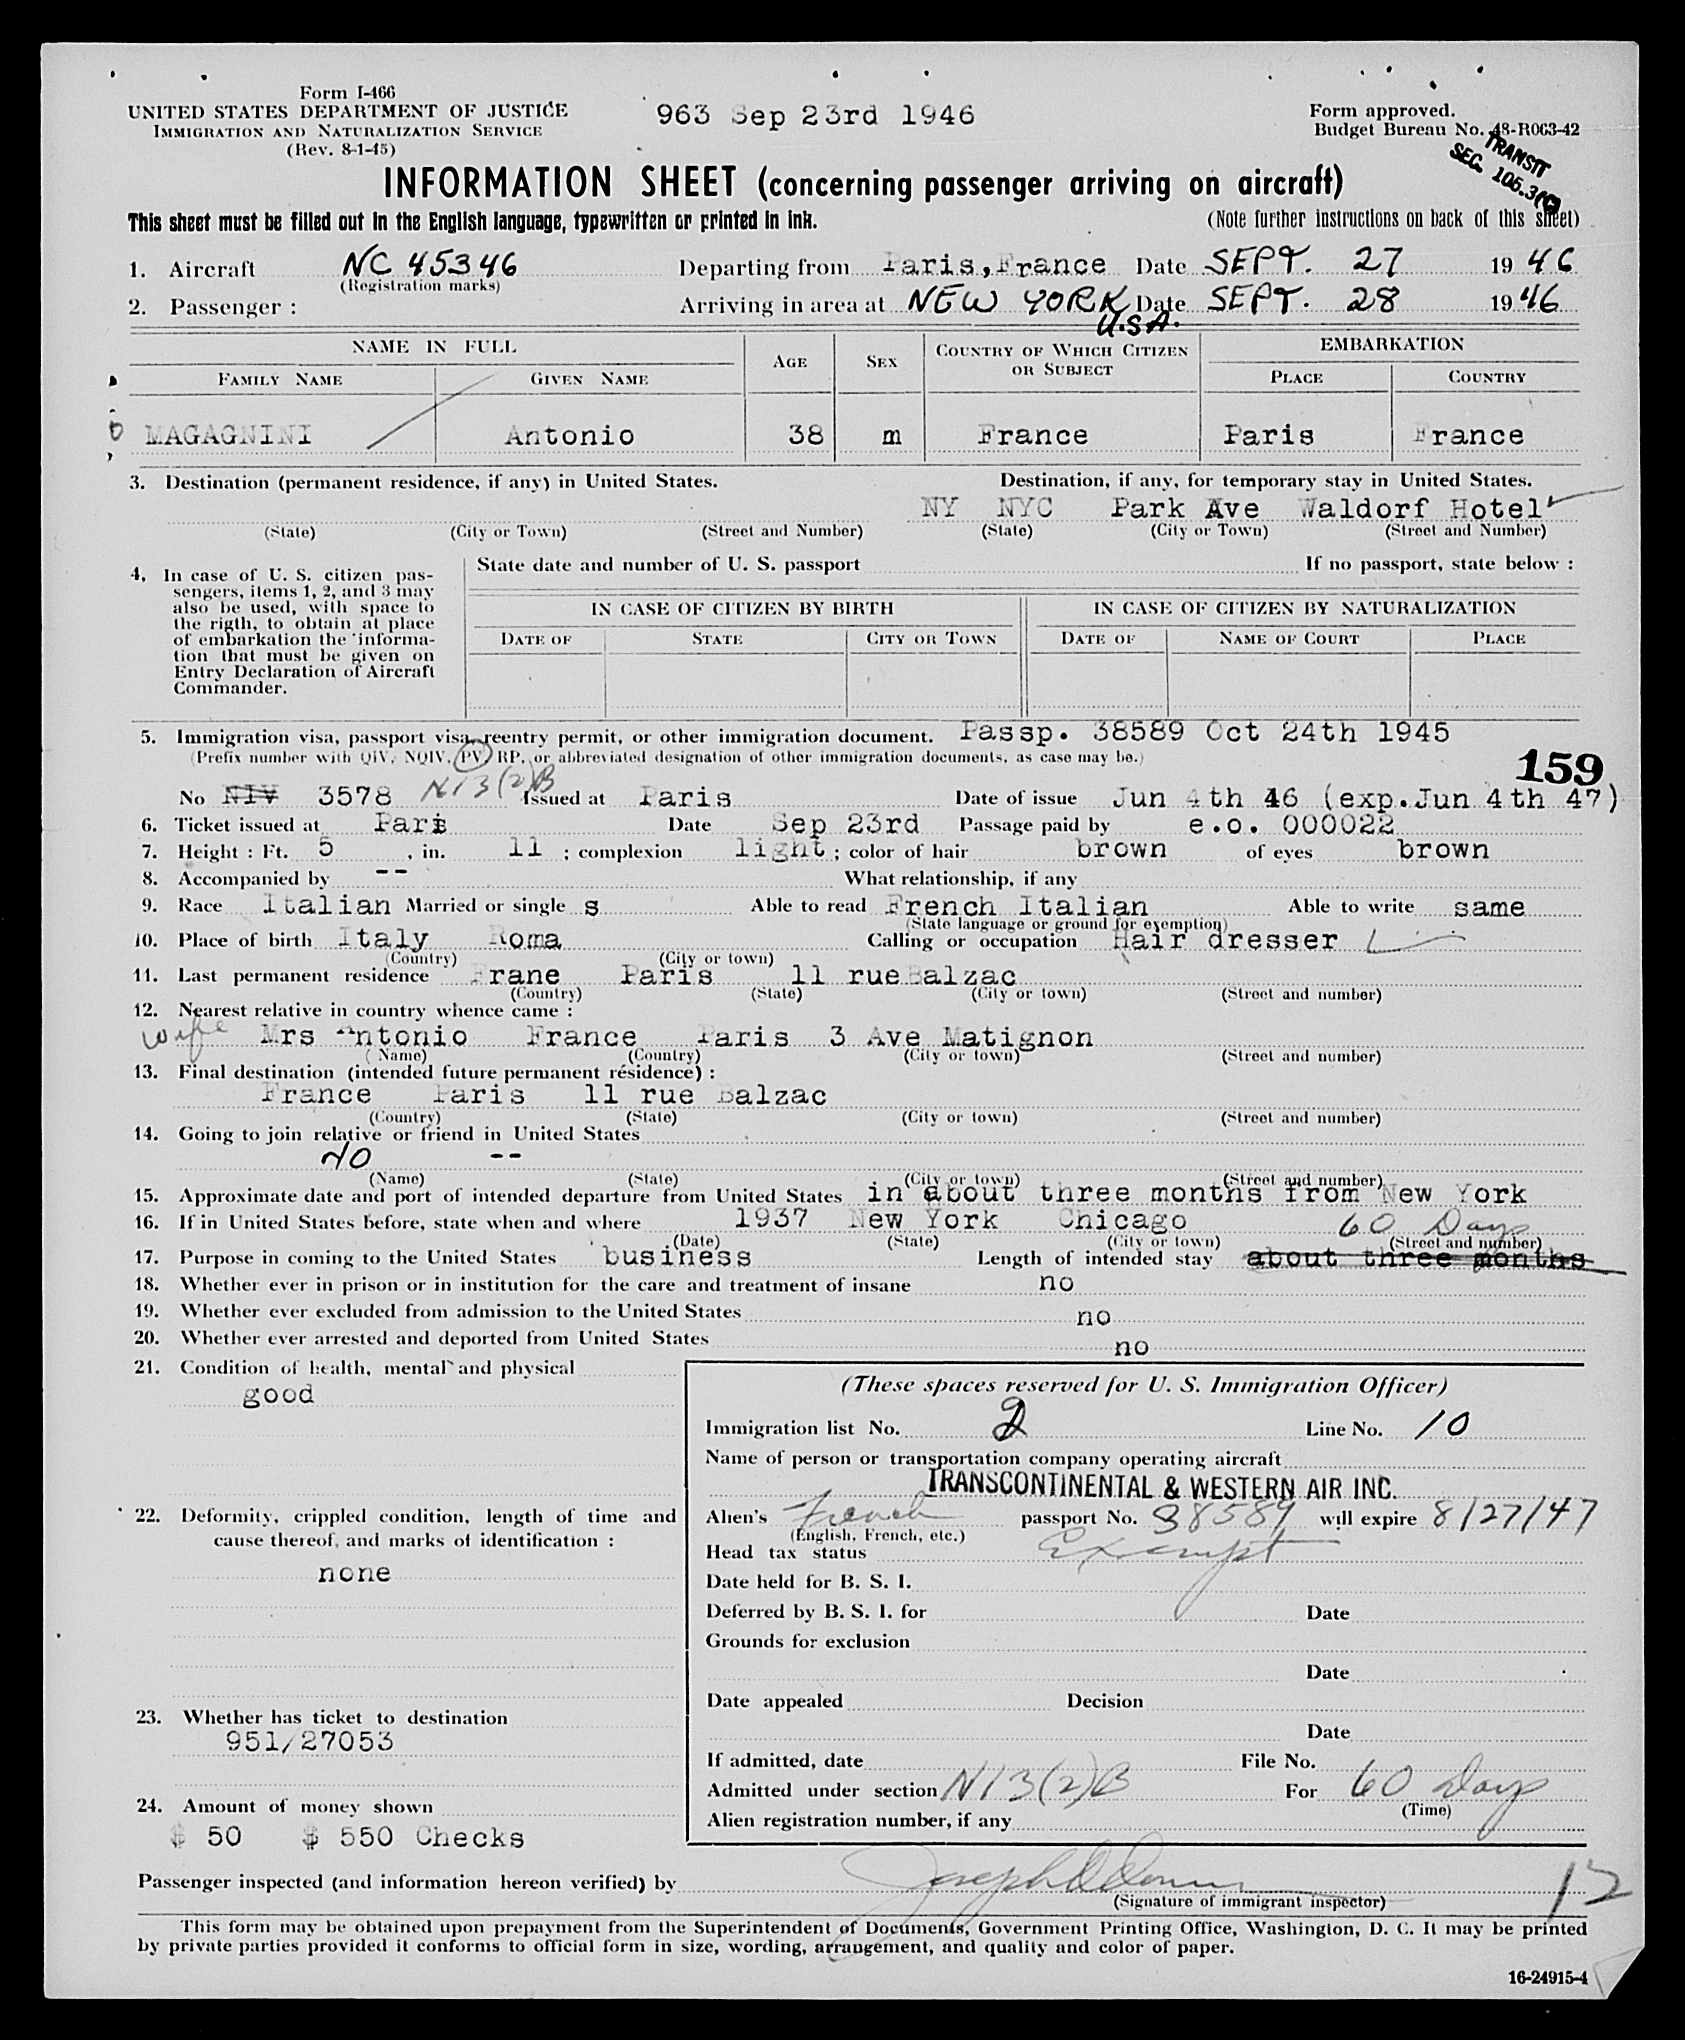 Form I-466
UNITED STATES DEPARTMENT OF JUSTICE
IMMIGRATION AND NATURALIZATION SERVICE
(Rev. 8-1-45)
963 Sep 23rd 1946
Form approved.
Budget Bureau No. 48-R063-42
TRANSIT
SEC. 106.3
INFORMATION SHEET (concerning passenger arriving on aircraft)
This sheet must be filled out in the English language, typewritten or printed in ink. (Note further instructions on back of this sheet)
1. Aircraft NC 45346 Departing from Paris,France Date SEPT. 27 19 46
(Registration marks)
2. Passenger : Arriving in area at NEW YORK U.S.A. Date SEPT. 28 19 46
NAME IN FULL AGE SEX COUNTRY OF WHICH CITIZEN OR SUBJECT EMBARKATION
FAMILY NAME GIVEN NAME PLACE COUNTRY
MAGAGNINI Antonio 38 m France Paris France
3. Destination (permanent residence, if any) in United States. Destination, if any, for temporary stay in United States.
NY NYC Park Ave Waldorf Hotel
(State) (City or Town) (Street and Number) (State) (City or Town) (Street and Number)
4, In case of U. S. citizen pas-
sengers, items 1, 2, and 3 may
also be used, with space to
the rigth, to obtain at place
of embarkation the informa-
tion that must be given on
Entry Declaration of Aircraft
Commander.
State date and number of U. S. passport If no passport, state below :
IN CASE OF CITIZEN BY BIRTH IN CASE OF CITIZEN BY NATURALIZATION
DATE OF STATE CITY OR TOWN DATE OF NAME OF COURT PLACE
5. Immigration visa, passport visa, reentry permit, or other immigration document. Passp. 38589 Oct 24th 1945
(Prefix number with QIV, NQIV, PV, RP, or abbreviated designation of other immigration documents, as case may be.)
159
No NIV 3578 N13(2)B Issued at Paris Date of issue Jun 4th 46 (exp.Jun 4th 47)
6. Ticket issued at Paris Date Sep 23rd Passage paid by e.o. 000022
7. Height : Ft. 5 , in. 11 ; complexion light ; color of hair brown of eyes brown
8. Accompanied by -- What relationship, if any
9. Race Italian Married or single s Able to read French Italian Able to write same
(State language or ground for exemption)
10. Place of birth Italy Roma Calling or occupation Hair dresser
(Country) (City or town)
11. Last permanent residence Frane Paris 11 rue Balzac
(Country) (State) (City or town) (Street and number)
12. Nearest relative in country whence came :
wife Mrs Antonio France Paris 3 Ave Matignon
(Name) (Country) (City or town) (Street and number)
13. Final destination (intended future permanent résidence) :
France Paris 11 rue Balzac
(Country) (State) (City or town) (Street and number)
14. Going to join relative or friend in United States
NO --
(Name) (State) (City or town) (Street and number)
15. Approximate date and port of intended departure from United States in about three months from New York
16. If in United States before, state when and where 1937 New York Chicago 60 Days
(Date) (State) (City or town) (Street and number)
17. Purpose in coming to the United States business Length of intended stay about three months
18. Whether ever in prison or in institution for the care and treatment of insane no
19. Whether ever excluded from admission to the United States no
20. Whether ever arrested and deported from United States no
21. Condition of health, mental and physical
good
(These spaces reserved for U. S. Immigration Officer)
Immigration list No. 2 Line No. 10
Name of person or transportation company operating aircraft
TRANSCONTINENTAL & WESTERN AIR INC.
22. Deformity, crippled condition, length of time and
cause thereof, and marks of identification :
none
Alien's French passport No. 38589 will expire 8/27/47
(English, French, etc.)
Head tax status Exempt
Date held for B. S. I.
Deferred by B. S. I. for Date
Grounds for exclusion
Date
Date appealed Decision
Date
23. Whether has ticket to destination
951/27053
If admitted, date File No.
Admitted under section N13(2)B For 60 Days
(Time)
Alien registration number, if any
24. Amount of money shown
$ 50 $ 550 Checks
Passenger inspected (and information hereon verified) by
(Signature of immigrant inspector)
12
This form may be obtained upon prepayment from the Superintendent of Documents, Government Printing Office, Washington, D. C. It may be printed
by private parties provided it conforms to official form in size, wording, arrangement, and quality and color of paper.
16-24915-4